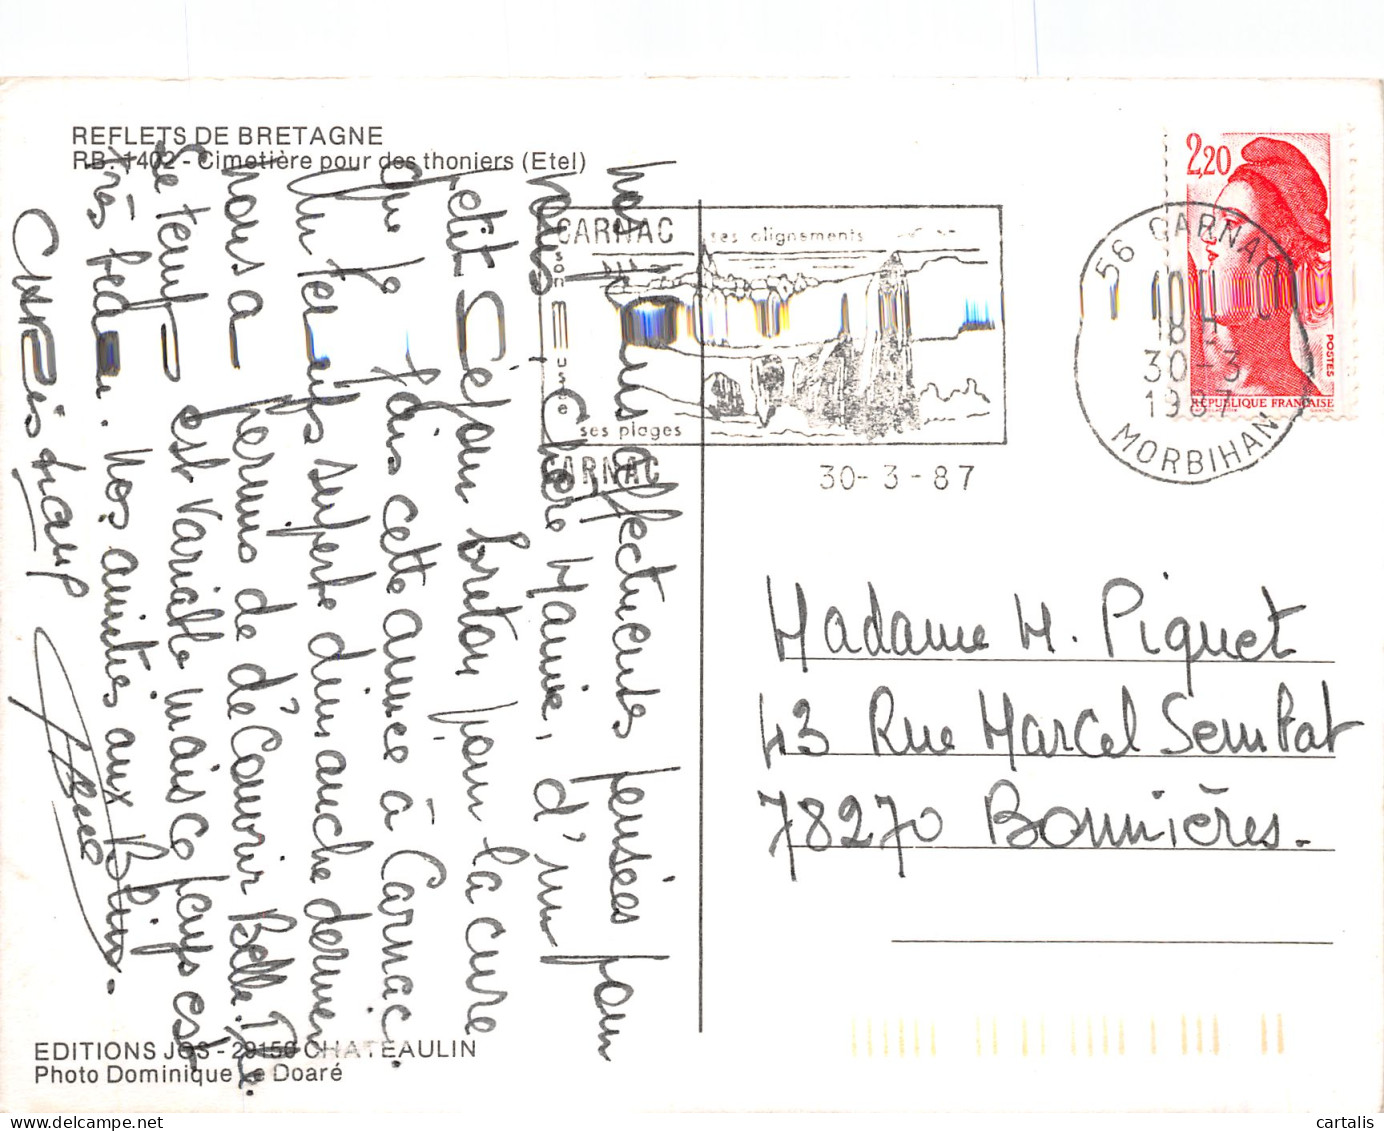 REFLETS DE BRETAGNE
RB. 1402 - Cimetière pour des thoniers (Etel)
CARNAC ses alignements
son Musée
ses plages
CARNAC
30-3-87
2,20
POSTES
RÉPUBLIQUE FRANÇAISE
56 CARNAC
18 H
30-3
1987
MORBIHAN
Nos plus affectueuses pensées pour
vous Chère Mamie, d'un
petit Séjour breton pour la cure
que je fais cette année à Carnac.
Un temps superbe dimanche dernier
nous a permis de découvrir Belle-Ile.
Le temps est variable mais ce pays est
très beau. Nos amitiés aux
Madame M. Piquet
43 Rue Marcel Sembat
78270 Bonnières.
EDITIONS JOS - 29150 CHATEAULIN
Photo Dominique Le Doaré
cartalis